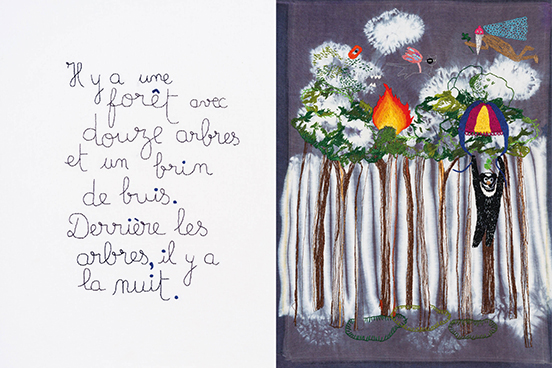 Il y a une
forêt avec
douze arbres
et un brin
de buis.
Derrière les
arbres, il y a
la nuit.